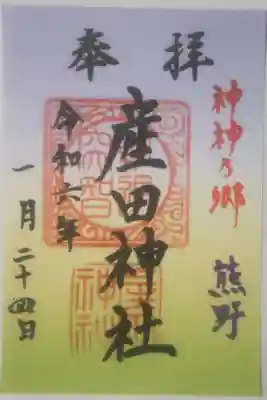 奉拝
神神乃郷 熊野
産田神社
令和六年
一月二十四日